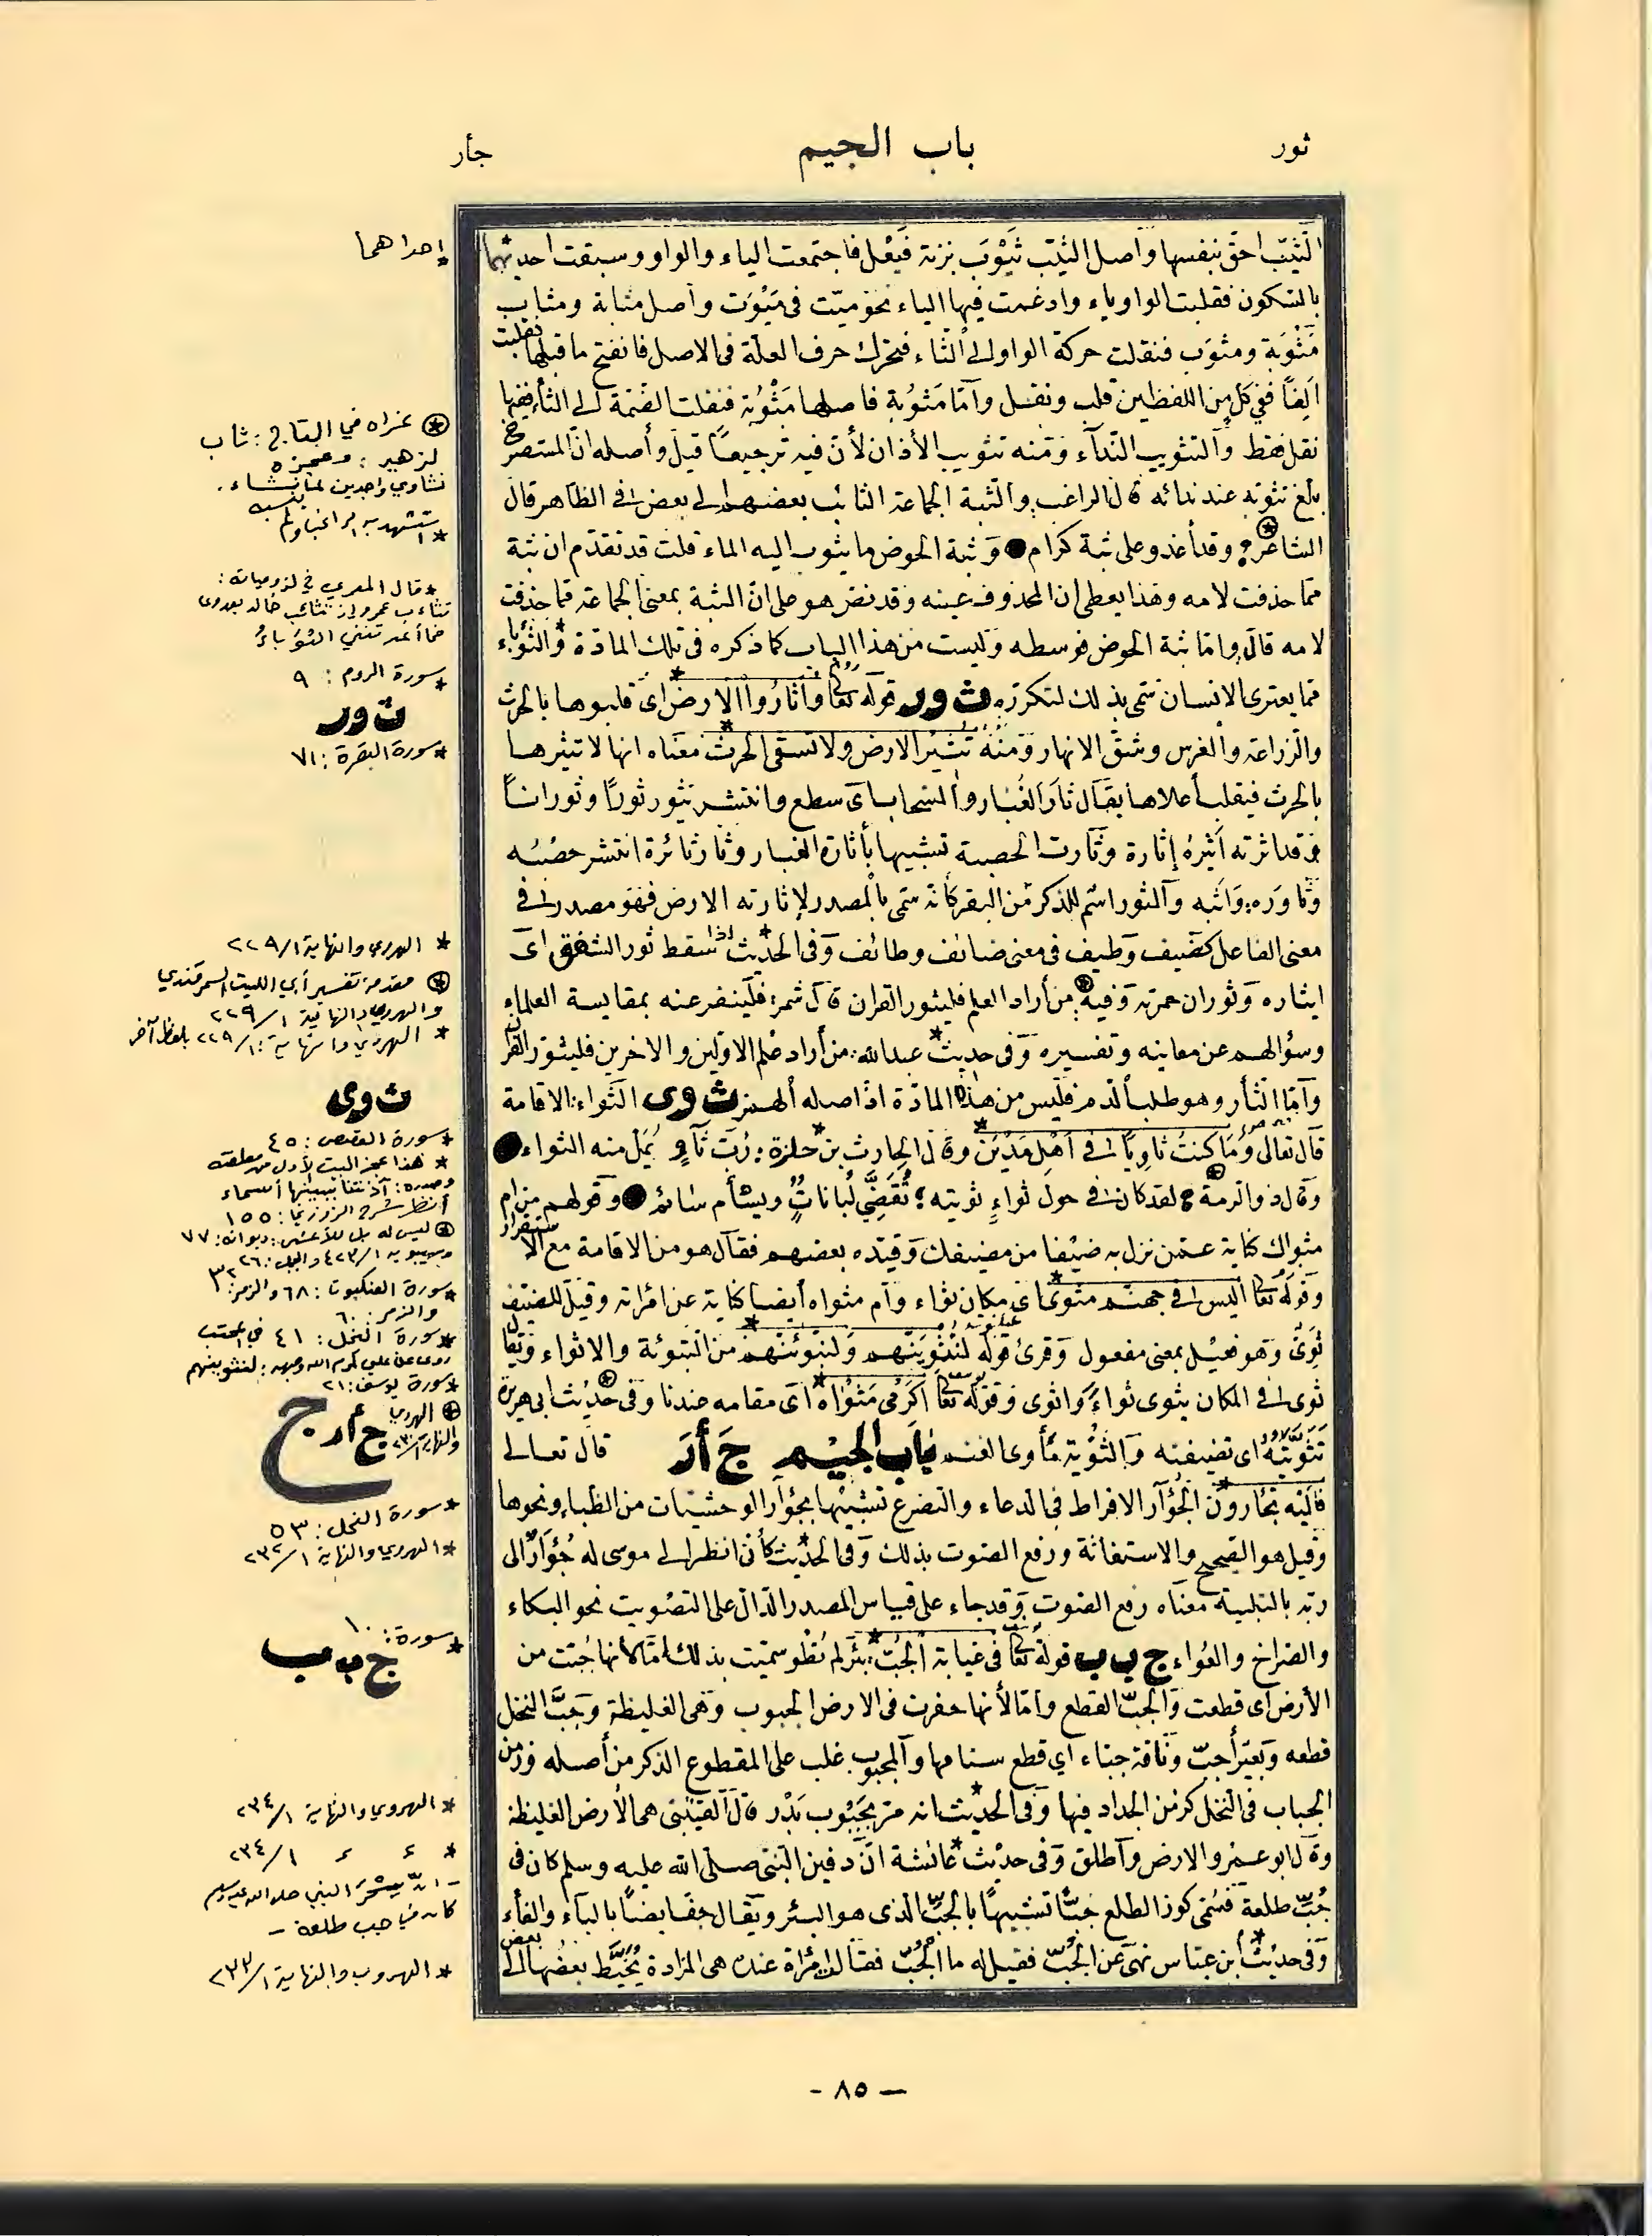 ثور
باب الجيم
جأر
الثيّب احق بنفسها واصل الثيّب ثَيْوِب بزنة فَيْعِل فاجتمعت الياء والواو وسبقت احديهما
بالسكون فقلبت الواو ياء وادغمت فيها الياء نحو ميّت فى مَيْوِت وأصل مثابة ومثاب
مَثْوَبة ومثوَب فنقلت حركة الواو الى الثاء فتحرك حرف العلّة فى الاصل فانفتح ما قبلها فقلبت
الِفًا ففى كل من اللفظين قلب ونقل وأمّا مَثوُبة فاصلها مَثْوُبة فنقلت الضمة الى الثاء ففيها
نقل فقط والتثويب النداء ومنه تثويب الأذان لأن فيه ترجيعًا قيل وأصله ان المستصرخ
يلمع بثوبه عند ندائه قال الراغب والثبة الجماعة الثائب بعضهم الى بعض فى الظاهر قال
الشاعر: وقد أغدو على ثبة كرام وثبة الحوض ما يثوب اليه الماء قلت قد تقدم ان ثبة
مما حذفت لامه وهذا يعطى ان المحذوف عينه وقد نص هو على انّ الثبة بمعنى الجماعة مما حذفت
لامه قال واما ثبة الحوض فوسطه وليست من هذا الباب كما ذكره فى تلك المادة والثؤباء
مما يعترى الانسان سمّى بذلك لتكرره ث و ر قوله تعا وأثاروا الارض اى قلبوها بالحرث
والزراعة والغرس وشق الانهار ومنه تثير الارض ولا تسقى الحرث معناه انها لا تثيرها
بالحرث فيقلب أعلاها يقال ثار الغبار والسحاب اى سطع وانتشر يثور ثورًا وثورانًا
وقد اثرته أثيره إثارة وثارت الحصبة تشبيها بأثارة الغبار وثار ثائرة انتشر غضبه
وثاوره: واثبه والثور اسم للذكر من البقر كأنه سمّى بالمصدر لإثارته الارض فهو مصدر فى
معنى الفاعل كضيف وطيف فى معنى ضائف وطائف وفى الحديث اذا سقط ثور الشفق اى
انتشاره وثوران حمرته وفيه: من أراد العلم فليثور القران قال شمر: فلينقر عنه بمقايسة العلماء
وسؤالهم عن معانيه وتفسيره وفى حديث عبدالله: من أراد علم الاولين والاخرين فليثور القران
وأمّا الثأر وهو طلب الدم فليس من هذه المادة اذ اصله الهمز ث و ى الثواء: الاقامة
قال تعالى وما كنت ثاويًا فى أهل مدين وقال الحارث بن حلزة: رُبّ ثاوٍ يُمَلّ منه الثواء
وقال ذو الرمة لقد كان فى حول ثواءٍ ثويته تُقَضّى لُبانات ويسأم سائم وقولهم من ام
مثواك كناية عمن نزل به ضيفا من مضيفك وقيده بعضهم فقال هو من الاقامة مع الاستقرار
وقوله تعا اليس فى جهنم مثوى اى مكان ثواء وام مثواه أيضا كناية عن امراته وقيل للضيف
ثوىّ وهو فعيل بمعنى مفعول وقرئ قوله لنثوينهم ولنبوئنهم من التبوئة والاثواء ويقال
ثوى فى المكان يثوى ثواءً واثوى وقوله تعا اكرمى مثواه اى مقامه عندنا وفى حديث ابى هريرة
تثويته اى تضيفته والثوية مأوى الغنم باب الجيم ج أ ر قال تعالى
فاليه تجأرون الجؤار الافراط فى الدعاء والتضرع تشبيها بجؤار الوحشيات من الظباء ونحوها
وقيل هو الضجيج والاستغاثة ورفع الصوت بذلك وفى الحديث كأنى انظر الى موسى له جُؤار الى
ربه بالتلبية معناه رفع الصوت وقد جاء على قياس المصدر الدال على التصويت نحو البكاء
والصراخ والعُواء ج ب ب قوله تعا فى غيابة الجب: بئر لم تُطْو سميت بذلك امّا لأنها جُبّت من
الأرض اى قطعت والجبّ القطع وامّا لأنها حفرت فى الارض الجبوب وهى الغليظة وجَبّ النخل
قطعه وبعير أجبّ وناقة جبّاء اى قطع سنامها والمجبوب غلب على المقطوع الذكر من أصله وزمن
الجباب فى النخل كزمن الجداد فيها وفى الحديث انه مر بجَبُوب بَدْر قال القتيبى هى الأرض الغليظة
وقال ابو عمرو الارض وأطلق وفى حديث عائشة انّ دفين النبى صلى الله عليه وسلم كان فى
جُبّ طلعة فسُمّى كوز الطلع جبًّا تشبيهًا بالجبّ الذى هو البئر ويقال جف ايضًا بالباء والفاء
وفى حديث ابن عباس نهى عن الجُبّ فقيل له ما الجُبّ فقالت امرأة عنده هى المزادة يُخيَّط بعضها الى بعض
إحداهما
⊛ عزاه في التاج: ثاب
لزهير: وعجزه
نشاوي واجدين لما نشاء.
* استشهد به الراغب ولم ينسبه
* قال المعري في لزومياته:
تثاءب عمرو إذ تثائب خالد بعدوى
فما أعدتني الثؤباءُ
* سورة الروم: ٩
ث ور
* سورة البقرة: ٧١
* الهروي والنهاية ٢٢٩/١
⊛ مقدمة تفسير أبي الليث السمرقندي
والهروي والنهاية ٢٢٩/١
* الهروي والنهاية: ٢٢٩/١ بلفظ آخر
ث وى
* سورة القصص: ٤٥
* هذا عجز البيت الأول من معلقته
وصدره: آذنتنا ببينها أسماء
أنظر شرح الزوزني: ١٥٥
⊛ ليس له بل للأعشى: ديوانه: ٧٧
وسيبويه ٤٢٣/١ والجمل: ٢٦
* سورة العنكبوت: ٦٨ والزمر: ٣٢
والزمر ٦٠
* سورة النحل: ٤١ في المحتسب
روى عن علي كرم الله وجهه: لنثوينهم
* سورة يوسف: ٢١
⊛ الهروي
والنهاية ٢٣٠/١
ج
ج أ ر
* سورة النحل: ٥٣
* الهروي والنهاية ٢٣٢/١
* سورة: ١٠
ج ب ب
* الهروي والنهاية ٢٣٤/١
* ٢٣٤/١
النبي صلى الله عليه وسلم
كان في جب طلعة –
* الهروي والنهاية ٢٣٣/١
– ٨٥ –